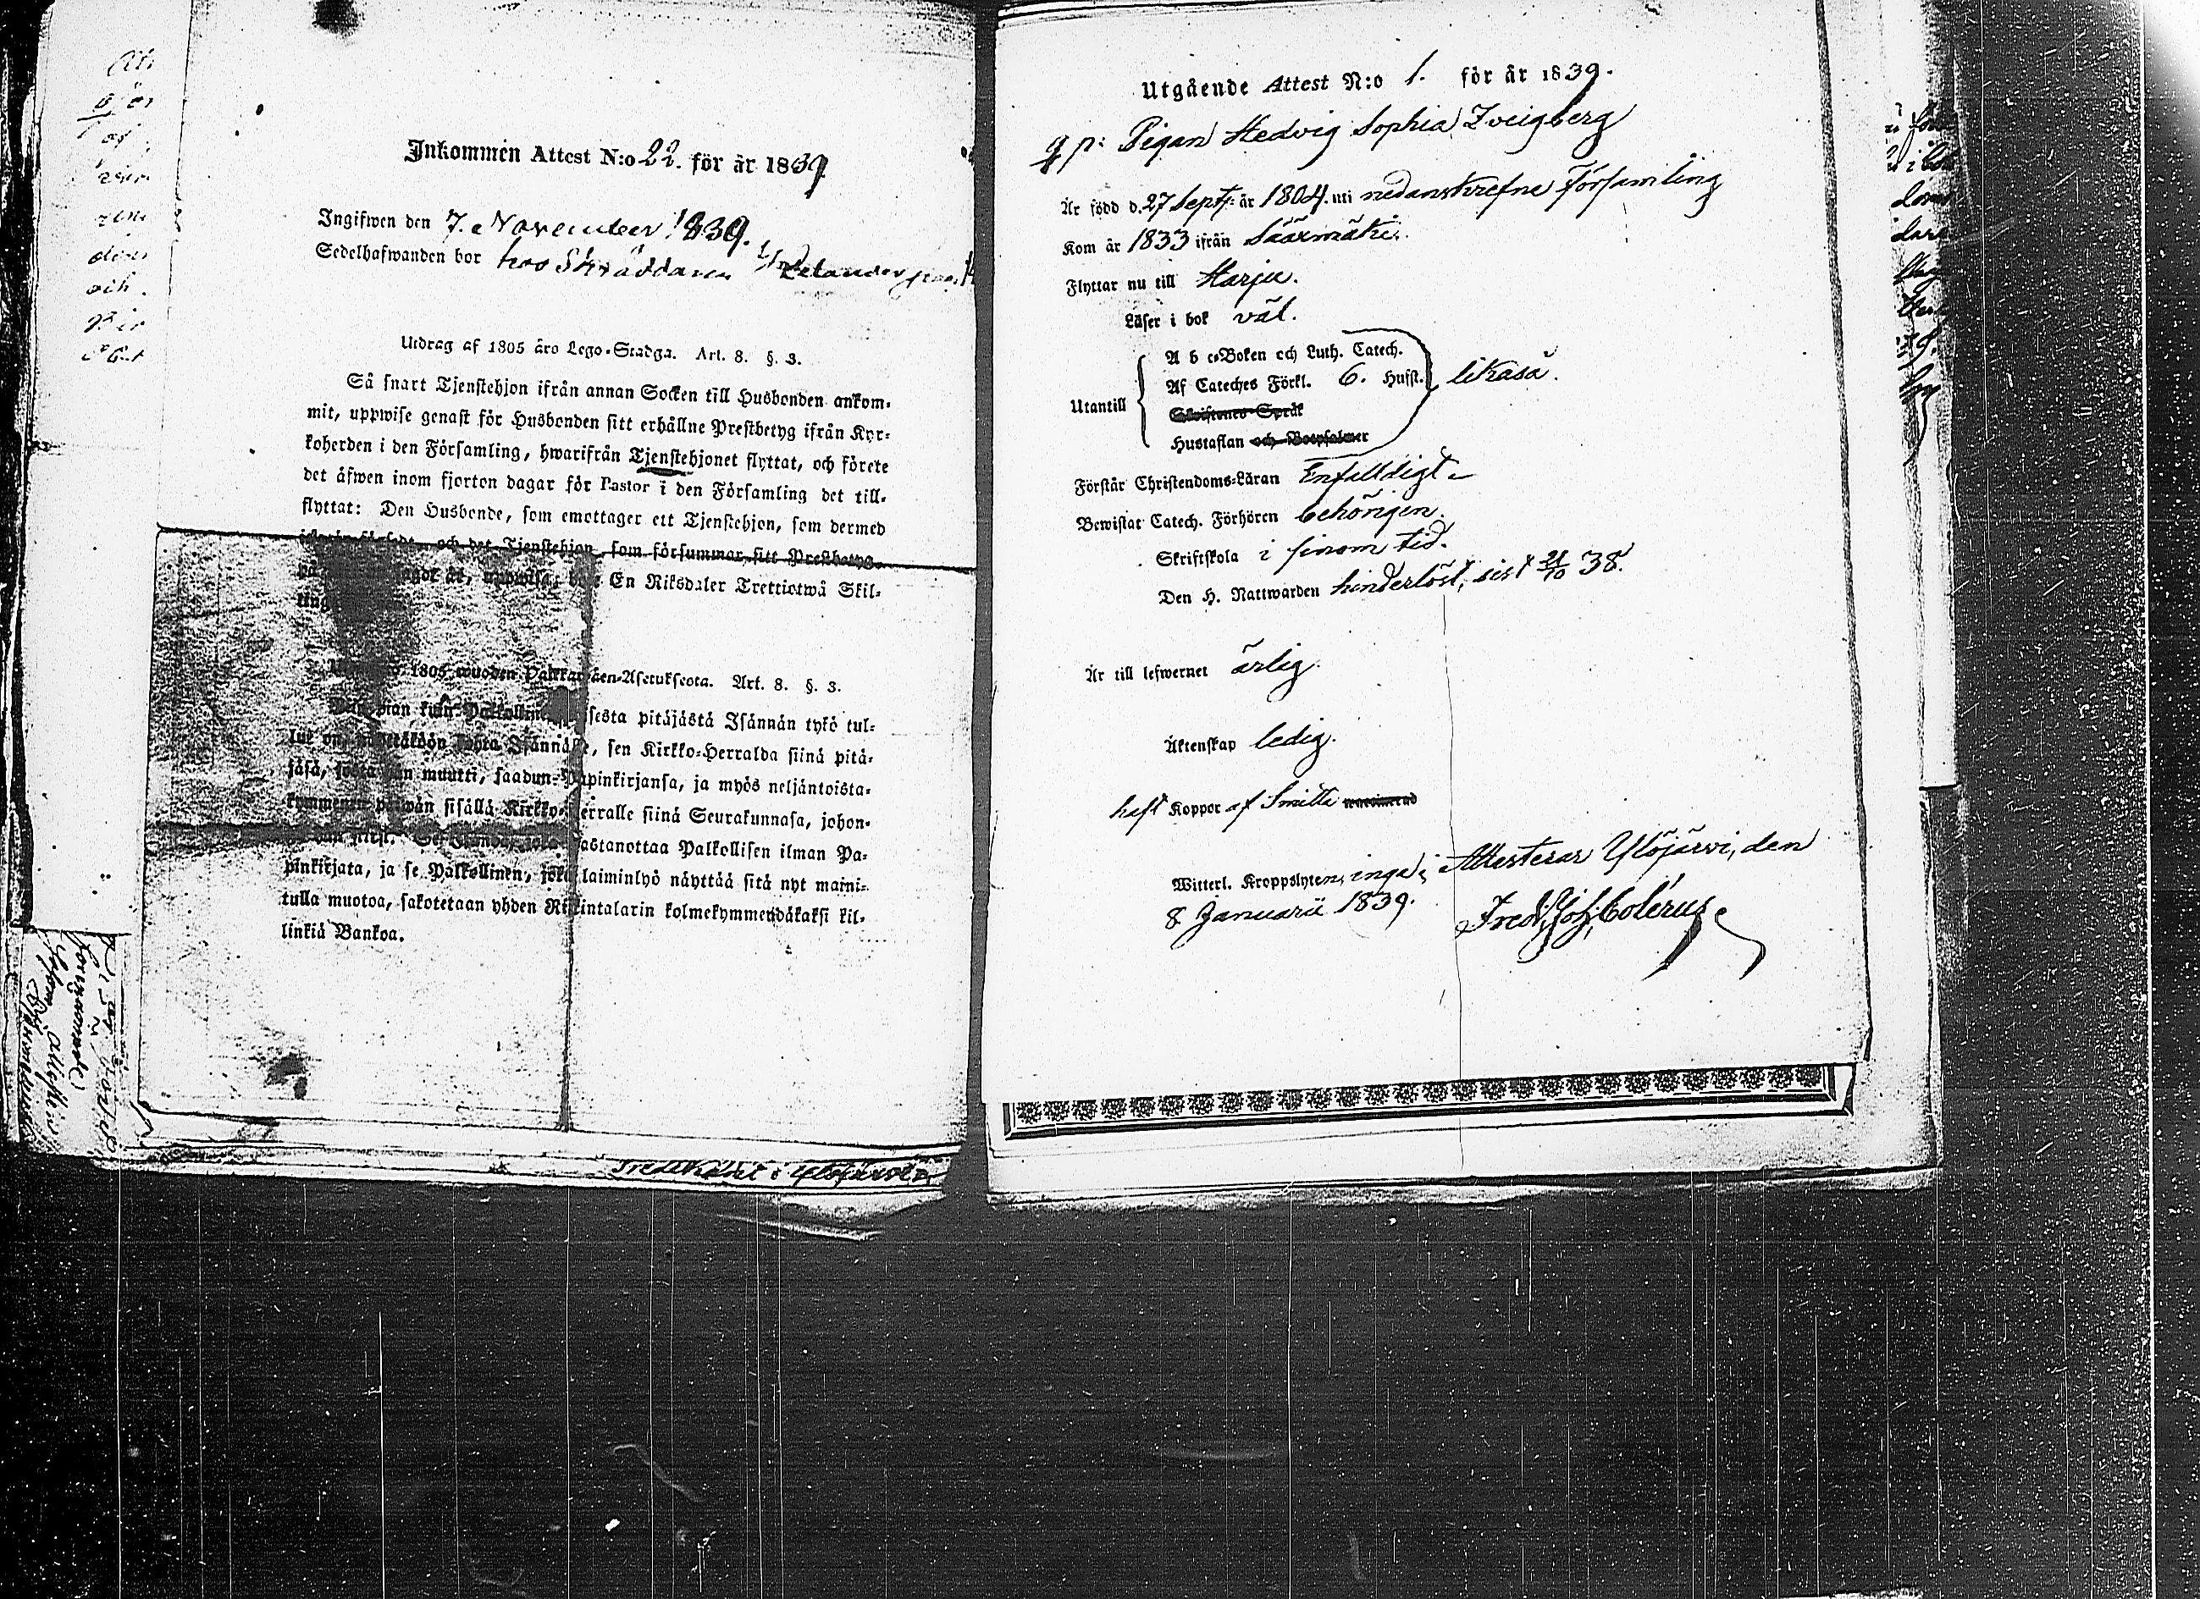 Inkommen Attest N:o 22. för år 1839
Ingifwen den 7. November 1839.
Sedelhafwanden bor hos Skräddaren Welander
Utdrag af 1805 års Lego-Stadga. Art. 8. §. 3.
Så snart Tjenstehjon ifrån annan Socken till Husbonden ankom-
mit, uppwise genast för Husbonden sitt erhållne Prestbetyg ifrån Kyr-
koherden i den Församling, hwarifrån Tjenstehjonet flyttat, och förete
det äfwen inom fjorton dagar för Pastor i den Församling det till-
flyttat: Den Husbonde, som emottager ett Tjenstehjon, som dermed
och det Tjenstehjon, som försummar, sitt Prestbetyg
uppwisa, böte En Riksdaler Trettiotwå Skil-
ling
1805 wuoden Palkkawäen-Asetuksesta. Art. 8. §. 3.
pian kuin Palkollinen sesta pitäjästä Isännän tykö tul-
lut on, näyttäköön kohta Isännälle, sen Kirkko-Herralda siinä pitä-
jäsä, josta hän muutti, saadun Papinkirjansa, ja myös neljäntoista-
kymmenen päiwän sisällä Kirkko-Herralle siinä Seurakunnasa, johon-
joka wastanottaa Palkollisen ilman Pa-
pinkirjata, ja se Palkollinen, joka laiminlyö näyttää sitä nyt maini-
tulla muotoa, sakotetaan yhden Riksintalarin kolmekymmendäkaksi kil-
linkiä Bankoa.
Predikant i Ylöjärvi
Utgående Attest N:o 1. för år 1839.
q p: Pigan Hedvig Sophia Zveigberg
Är född d. 27 Sept. år 1804. uti nedanskrefne Församling
Kom år 1833 ifrån Säaxmäki.
Flyttar nu till Harju.
Läser i bok väl.
Utantill
A b c-Boken och Luth. Catech.
Af Cateches Förkl. 6. Hufst. likaså.
Skriftenes Språk
Hustaflan och Botpsalmer
Förstår Christendoms-Läran Enfalldigt
Bewistat Catech. Förhören behörigen.
Skriftskola i sinom tid.
Den H. Nattwarden hinderlöst, sist 21/10 38.
Är till lefwernet ärlig.
Äktenskap ledig.
haft Koppor af Smitta vaccinerad
Witterl. Kroppslyten, inga; Attesterar Ylöjärvi, den
8 Januarii 1839. Fred. Joh. Colérus